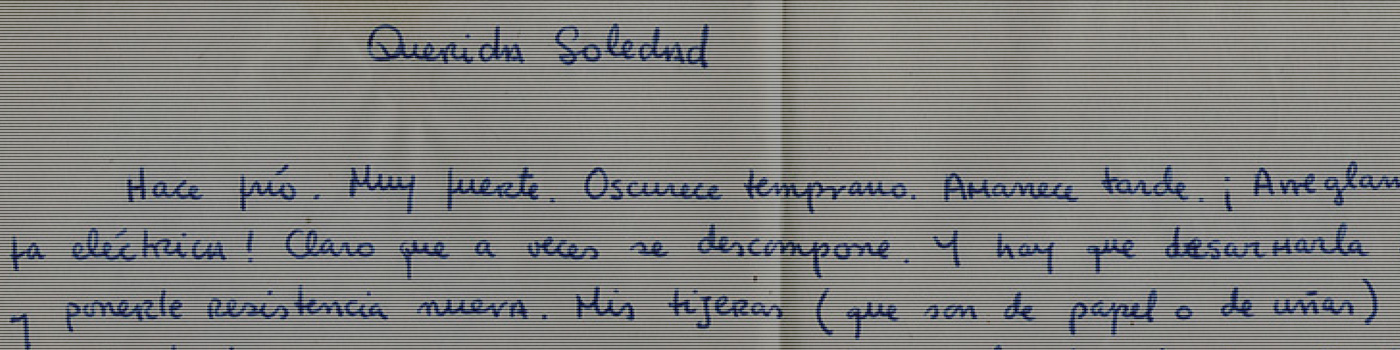 Querida Soledad
Hace frío. Muy fuerte. Oscurece temprano. Amanece tarde. ¡
eléctrica! Claro que a veces se descompone. Y hay que desarmarla
y ponerle resistencia nueva. Mis tijeras (que son de papel o de uñas)